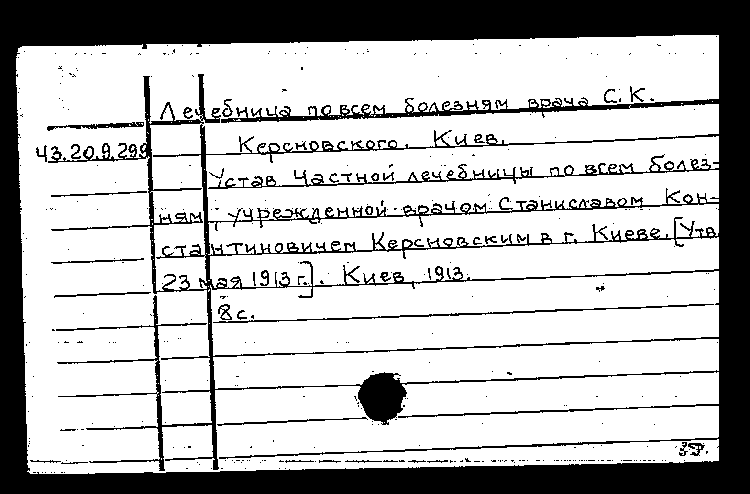 Лечебница по всем болезням врача С. К.
43.20.9.299 Керсновского. Киев.
Устав Частной лечебницы по всем болез-
ням, учрежденной врачом Станиславом Кон-
стантиновичем Керсновским в г. Киеве. [Утв.
23 мая 1913 г.]. Киев, 1913.
8 с.